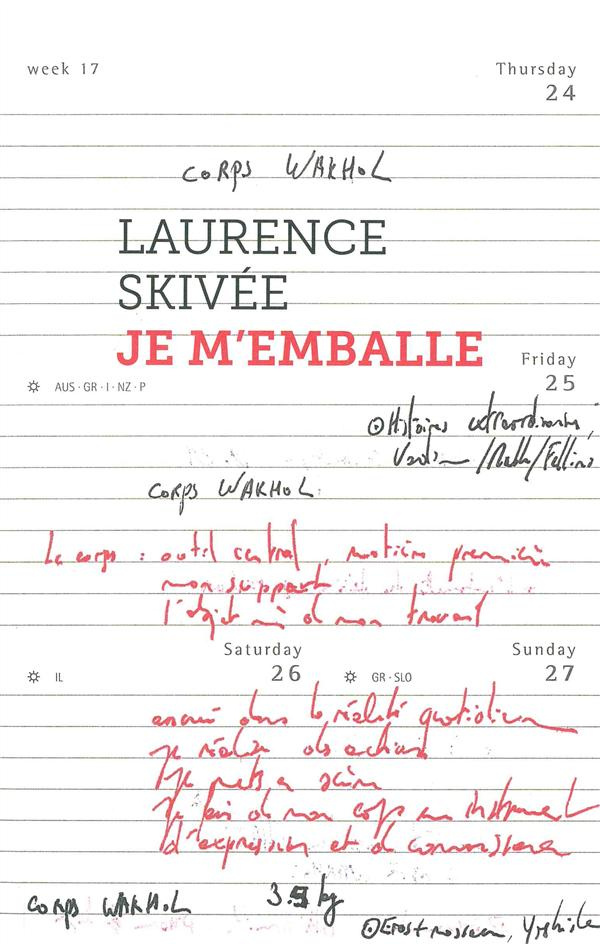 week 17
Thursday
24
CORPS WARHOL
LAURENCE
SKIVÉE
JE M'EMBALLE
Friday
25
AUS · GR · I · NZ · P
Histoires extraordinaires,
Vadim / Malle / Fellini
CORPS WARHOL
Le corps : outil central, matière première
mon support
l'objet de mon travail
Saturday
26
IL
Sunday
27
GR · SLO
ancré dans la réalité quotidienne
je réalise des actions
je mets en scène
je fais de mon corps un instrument
d'expression et de connaissance
CORPS WARHOL
3.5 kg
Eros + massacre, Yoshida